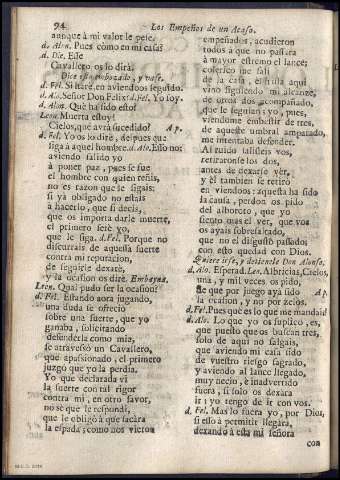 94 Los Empeños de un Acaso.
aunque à mi valor le pese.
d. Alon. Pues còmo en mi casa?
d. Die. Esse
Cavallero os lo dirà.
Dice esto embozado, y vase.
d. Fel. Si harè en aviendoos seguido.
d. Al. Señor Don Felix? d. Fel. Yo soy.
d. Alon. Què ha sido esto?
Leon. Muerta estoy!
Cielos, que avrà sucedido? Ap.
d. Fel. Yo os lo dirè, despues que
siga à aquel hombre. d. Alo. Esso no:
aviendo salido yo
à poner paz, pues se fue
el hombre con quien reñis,
no es razon que le sigais:
si ya obligado no estais
à hacerlo, que si decis,
que os importa darle muerte,
el primero serè yo,
que le siga. d. Fel. Porque no
discurrais de aquesta suerte
contra mi reputacion,
de seguirle dexarè,
y la ocasion os dirè. Embayna.
Leon. Qual pudo ser la ocasion?
d. Fel. Estando aora jugando,
una duda se ofreciò
sobre una suerte, que yo
ganaba, solicitando
defenderla como mia,
se atravesò un Cavallero,
que apassionado, el primero
juzgò que yo la perdia.
Yo que declarada vi
la suerte con tal rigor
contra mi, en otro favor,
no se què le respondi,
que le obligò à que sacàra
la espada; como nos vieron
empeñados, acudieron
todos à que no passàra
à mayor estremo el lance;
colerico me salì
de la casa, el hasta aqui
vino siguiendo mi alcance,
de otros dos acompañado,
que le seguian; yo, pues,
viendome embestir de tres,
de aqueste umbral amparado,
me intentaba defender.
Al ruido salisteis vos,
retiraronse los dos,
antes de dexarse vèr,
y èl tambien se retirò
en viendoos: aquesta ha sido
la causa, perdon os pido
del alboroto, que yo
siento mas el ver, que vos
os ayais sobresaltado,
que no el disgusto passado;
con esto quedad con Dios.
Quiere irse, y detienele Don Alonso.
d. Alo. Esperad. Leo. Albricias, Cielos,
una, y mil veces os pido,
de que por juego aya sido Ap.
la ocasion, y no por zelos.
d. Fel. Pues què es lo que me mandais?
d. Alo. Lo que yo os suplico, es,
que puesto que os buscan tres,
solo de aqui no salgais,
que aviendo mi casa sido
de vuestro riesgo sagrado,
y aviendo al lance llegado,
muy necio, è inadvertido
fuera, si solo os dexàra
ir; yo tengo de ir con vos.
d. Fel. Mas lo fuera yo, por Dios,
si esso à permitir llegàra,
dexando à esta mi señora
con